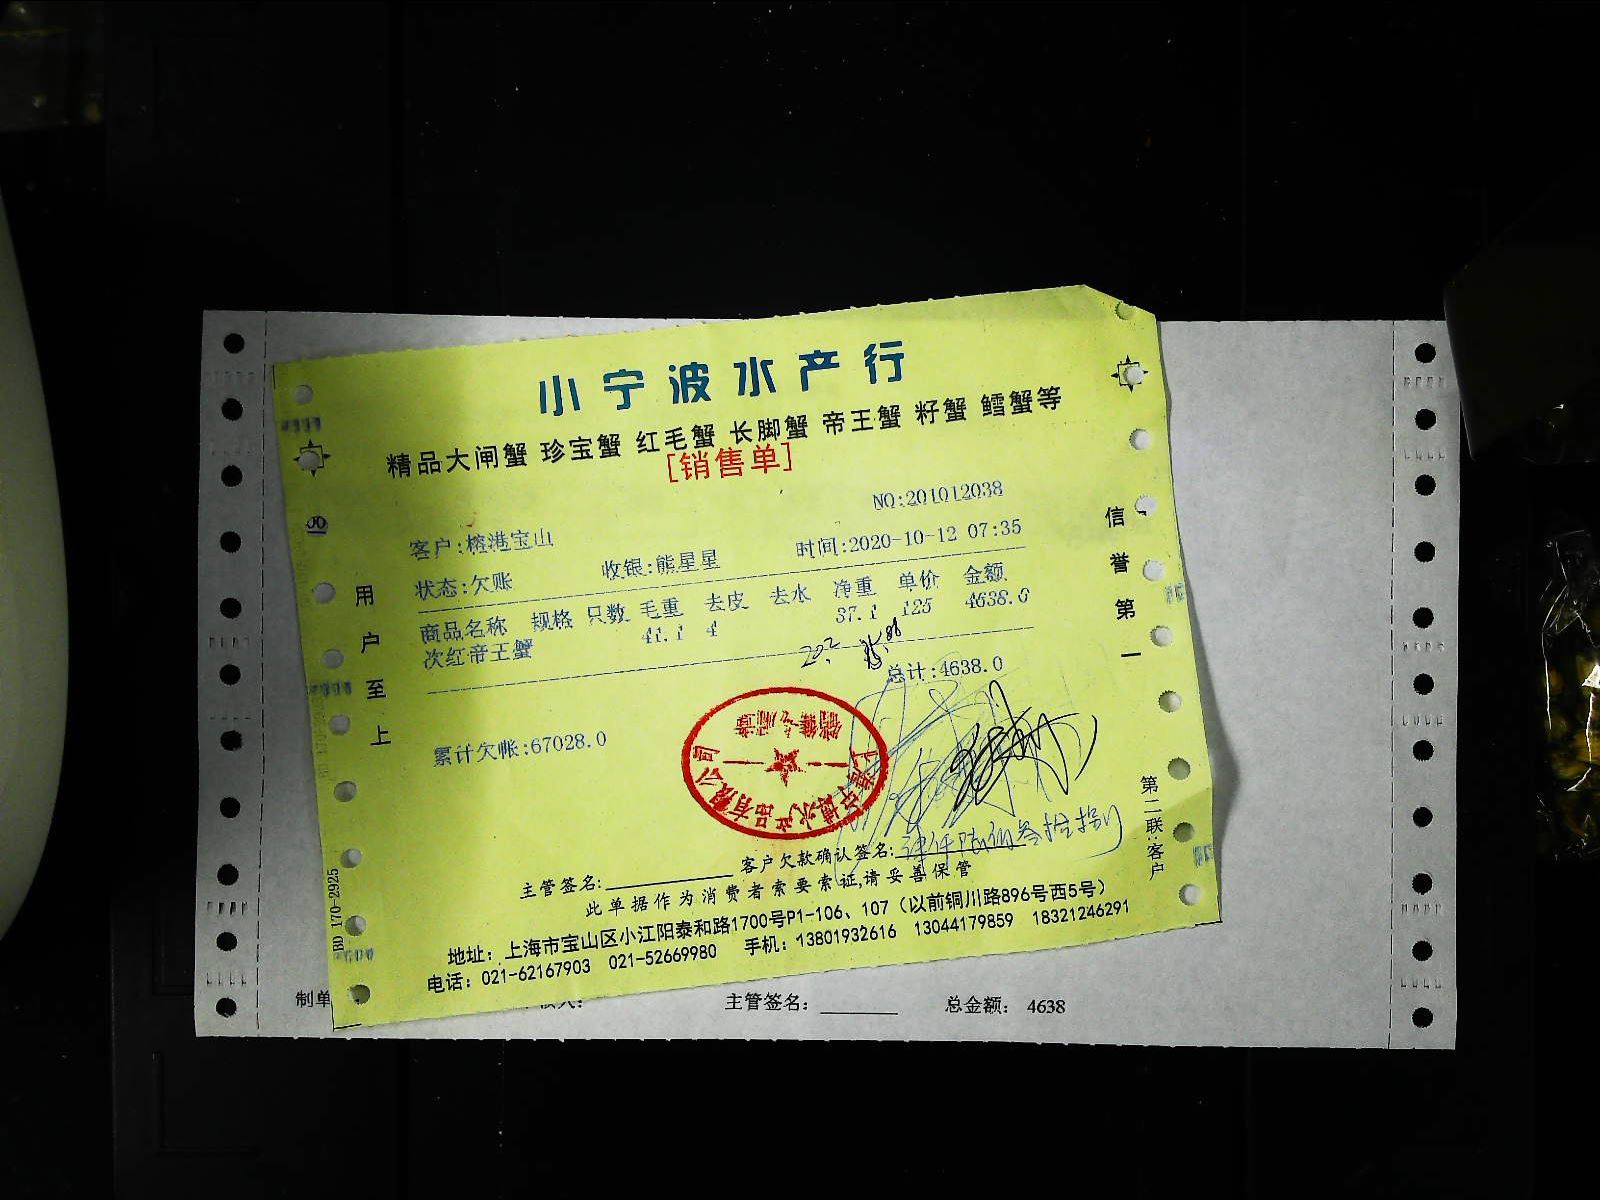 小宁波水产行
精品大闸蟹 珍宝蟹 红毛蟹 长脚蟹 帝王蟹 籽蟹 鳕蟹等
[销售单]
NO:201012038
客户:榕港宝山
时间:2020-10-12 07:35
状态:欠账 收银:熊星星
商品名称 规格 只数 毛重 去皮 去水 净重 单价 金额
次红帝王蟹 41.1 4 37.1 125 4638.0
总计:4638.0
累计欠帐:67028.0
主管签名: 客户欠款确认签名:
此单据作为消费者索要索证,请妥善保管
地址：上海市宝山区小江阳泰和路1700号P1-106、107（以前铜川路896号西5号）
电话：021-62167903 021-52669980 手机：13801932616 13044179859 18321246291
用户至上
信誉第一
第二联:客户
BD 170-2925
制单
主管签名： 总金额： 4638